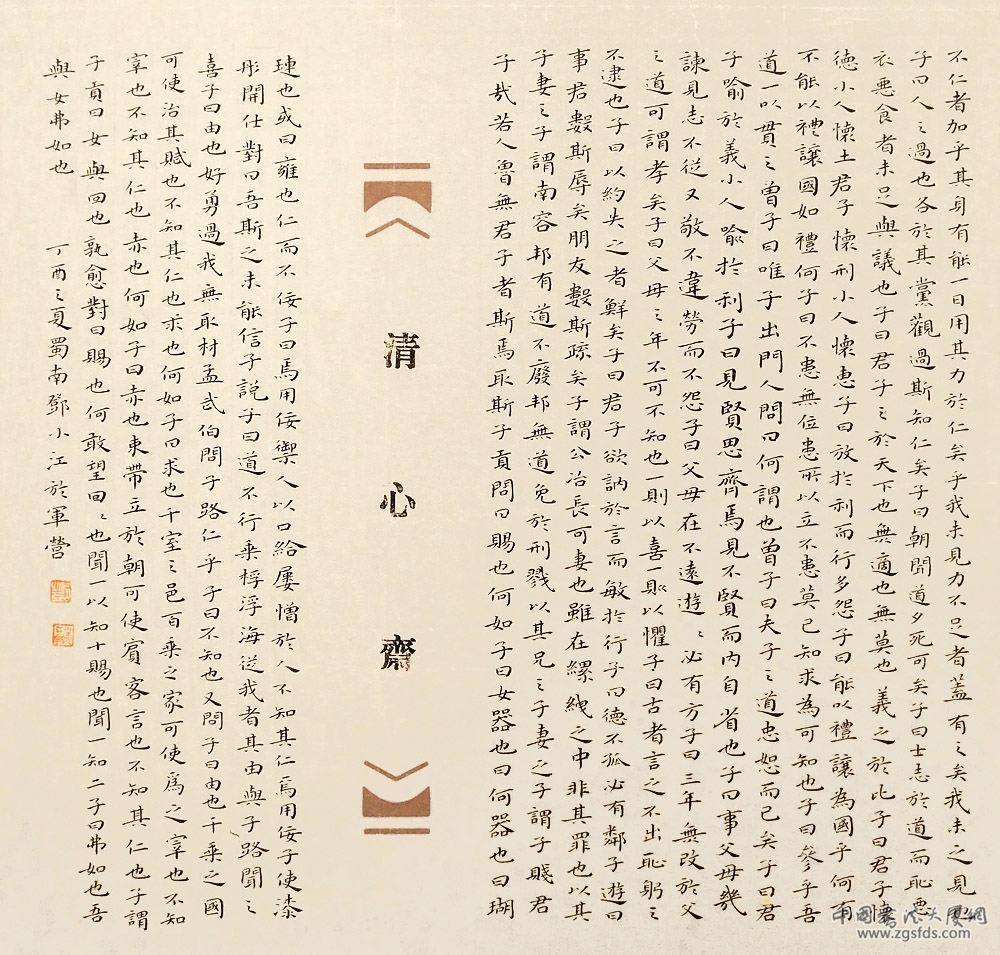 不仁者加乎其身有能一日用其力於仁矣乎我未見力不足者蓋有之矣我未之見也
子曰人之過也各於其黨觀過斯知仁矣子曰朝聞道夕死可矣子曰士志於道而恥惡
衣惡食者未足與議也子曰君子之於天下也無適也無莫也義之於比子曰君子懷
德小人懷土君子懷刑小人懷惠子曰放於利而行多怨子曰能以禮讓為國乎何有
不能以禮讓國如禮何子曰不患無位患所以立不患莫己知求為可知也子曰參乎吾
道一以貫之曾子曰唯子出門人問曰何謂也曾子曰夫子之道忠恕而已矣子曰君
子喻於義小人喻於利子曰見賢思齊焉見不賢而內自省也子曰事父母幾
諫見志不從又敬不違勞而不怨子曰父母在不遠遊遊必有方子曰三年無改於父
之道可謂孝矣子曰父母之年不可不知也一則以喜一則以懼子曰古者言之不出恥躬之
不逮也子曰以約失之者鮮矣子曰君子欲訥於言而敏於行子曰德不孤必有鄰子遊曰
事君數斯辱矣朋友數斯疏矣子謂公冶長可妻也雖在縲絏之中非其罪也以其
子妻之子謂南容邦有道不廢邦無道免於刑戮以其兄之子妻之子謂子賤君
子哉若人魯無君子者斯焉取斯子貢問曰賜也何如子曰女器也曰何器也曰瑚
清心齋
璉也或曰雍也仁而不佞子曰焉用佞禦人以口給屢憎於人不知其仁焉用佞子使漆
彫開仕對曰吾斯之未能信子說子曰道不行乘桴浮海從我者其由與子路聞之
喜子曰由也好勇過我無取材孟武伯問子路仁乎子曰不知也又問子曰由也千乘之國
可使治其賦也不知其仁也求也何如子曰求也千室之邑百乘之家可使為之宰也不知
宰也不知其仁也赤也何如子曰赤也束帶立於朝可使賓客言也不知其仁也子謂
子貢曰女與回也孰愈對曰賜也何敢望回回也聞一以知十賜也聞一知二子曰弗如也吾
與女弗如也 丁酉之夏蜀南鄧小江於軍營
中國書法大廈網
www.zgsfds.com